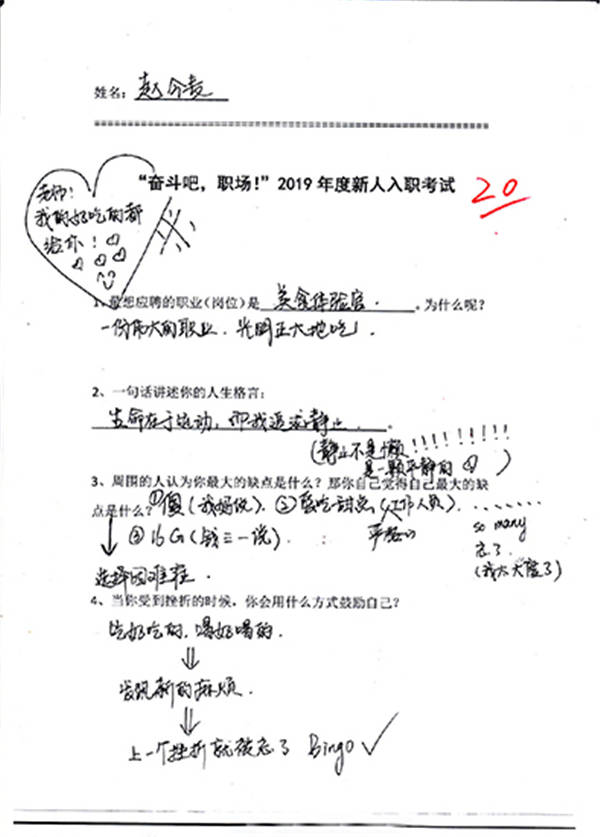 姓名：赵今麦
"奋斗吧，职场！"2019 年度新人入职考试
20
老师！
我的好吃的都
给你！
1、最想应聘的职业（岗位）是 美食体验官。为什么呢？
一份伟大的职业，光明正大地吃！
2、一句话讲述你的人生格言：
生命在于运动，而我追求静止。
（静止不是懒！！！！！！！！！
是一颗平静的）
3、周围的人认为你最大的缺点是什么？那你自己觉得自己最大的缺
点是什么？①傻（我妈说）. ②爱吃甜点（工作人员）.
③16G（钱三一说）.
严格的
so many
忘了
（我太天蝎了）
选择困难症.
4、当你受到挫折的时候，你会用什么方式鼓励自己？
吃好吃的，喝好喝的.
⇓
发现新的麻烦.
⇓
上一个挫折就被忘了 Bingo ✓